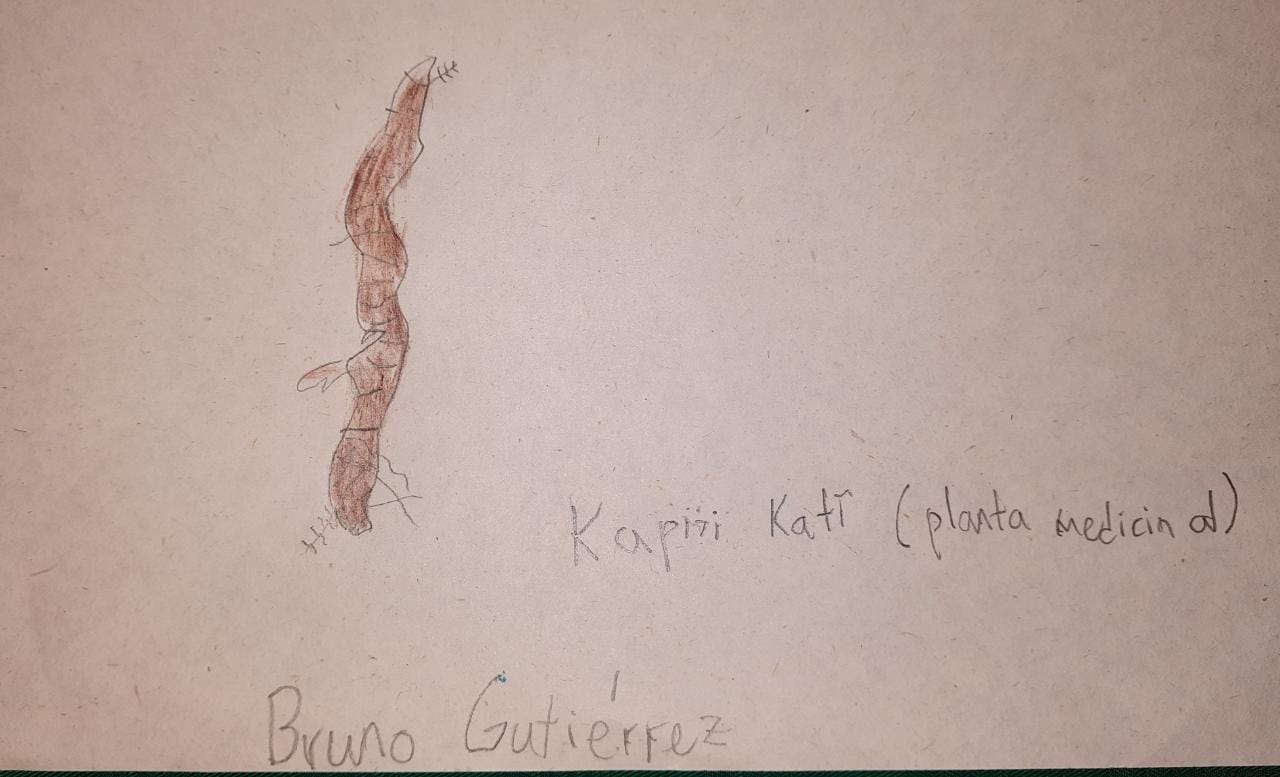 Kapiïi Katî (planta medicinal)
Bruno Gutiérrez